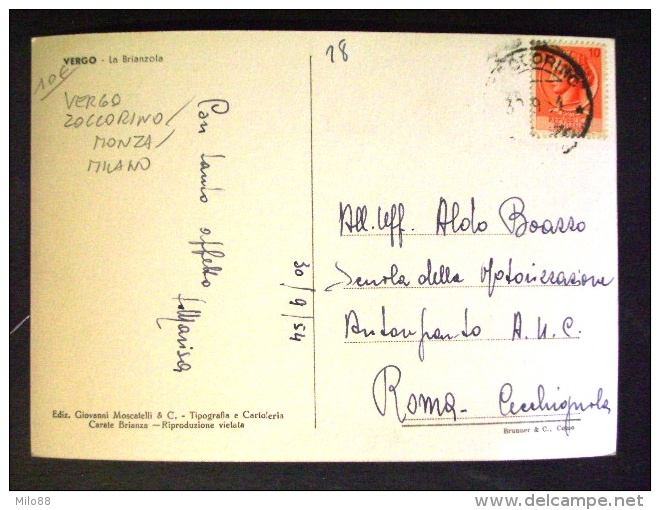 VERGO - La Brianzola
10€
VERGO
ZOCCORINO/
MONZA/
MILANO
18
10
30 9
Con tanto affetto
Marisa
30/9/54
All. Uff. Aldo Boasso
Scuola della Motorizzazione
A.U.C.
Roma - Cecchignola
Ediz. Giovanni Moscatelli & C. - Tipografia e Cartoleria
Carate Brianza — Riproduzione vietata
Brunner & C., Como
Milo88
delcampe.net